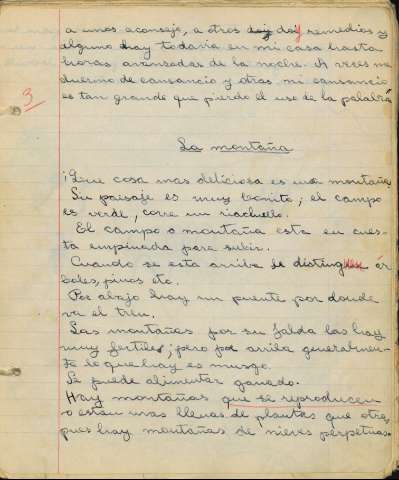 a unos aconsejo, a otros doy doy remedios y
alguno hay todavía en mi casa hasta
horas avansadas de la noche. A veces me
duermo de cansancio y otras mi cansancio
es tan grande que pierdo el uso de la palabra
3
La montaña
¡Que cosa mas deliciosa es una montaña
Su paisaje es muy bonito; el campo
es verde, corre un riachuelo.
El campo o montaña esta en cues-
ta empinada para subir.
Cuando se esta arriba se distinguen ár
boles, pinos etc.
Por abajo hay un puente por donde
va el tren.
Las montañas por su falda las hay
muy fertiles; pero por arriba generalmen-
te lo que hay es musgo.
Se puede alimentar ganado.
Hay montañas que se reproducen
o estan mas llenas de plantas que otras,
pues hay montañas de nieves perpetuas.